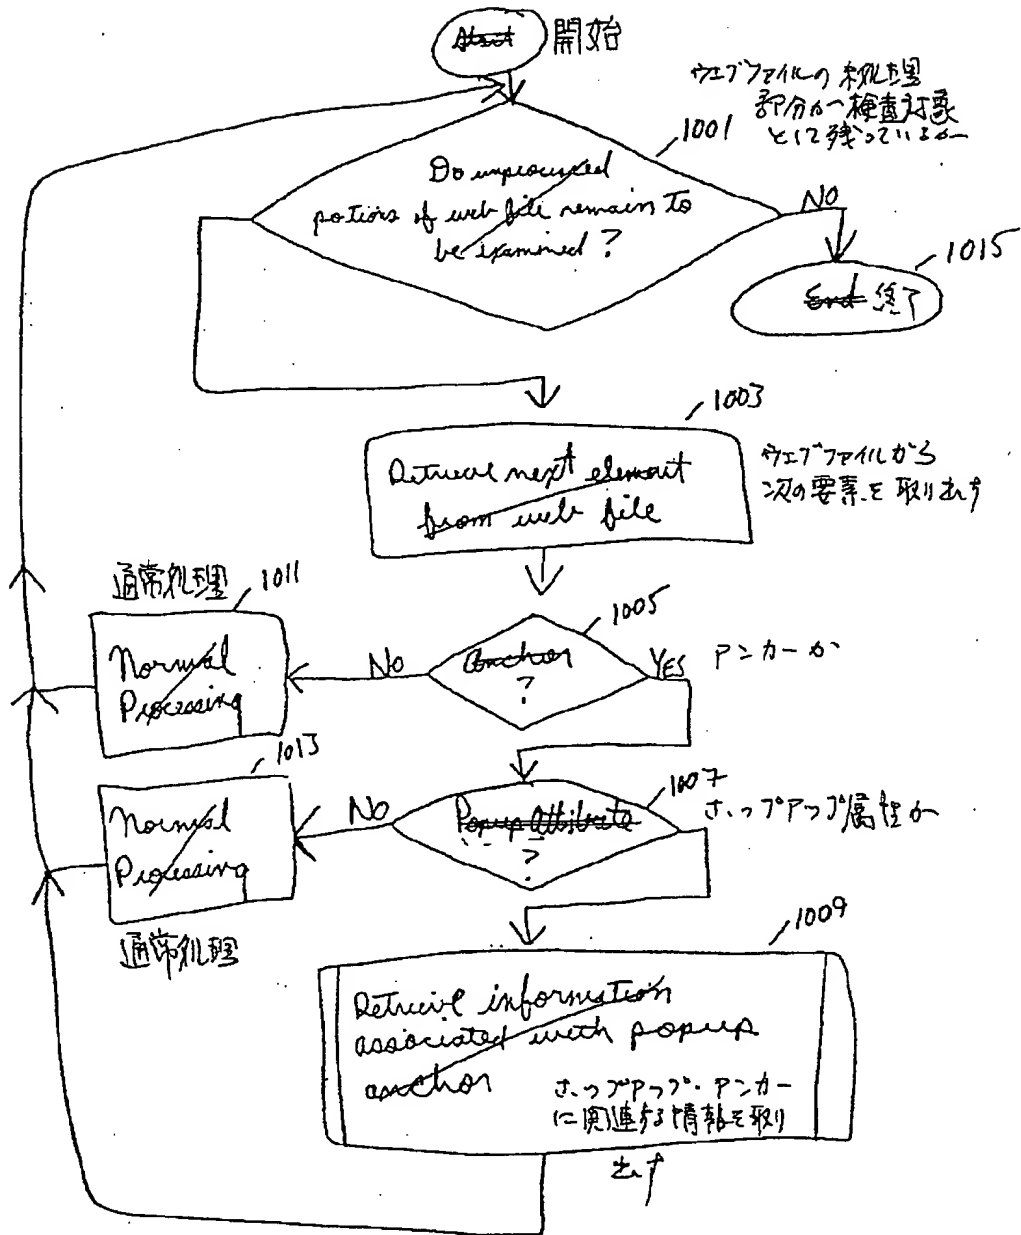 Start 開始
ウェブファイルの未処理
部分が検査対象
として残っているか
1001
Do unprocessed
potions of web file remain to
be examined?
NO
1015
End 終了
1003
Retrieve next element
from web file
ウェブファイルから
次の要素を取り出す
通常処理 1011
Normal
Processing
No
1005
Anchor
?
YES アンカーか
1013
Normal
Processing
通常処理
No
1007
Popup attribute
?
ポップアップ属性か
1009
Retrieve information
associated with popup
anchor
ポップアップ・アンカー
に関連する情報を取り
出す